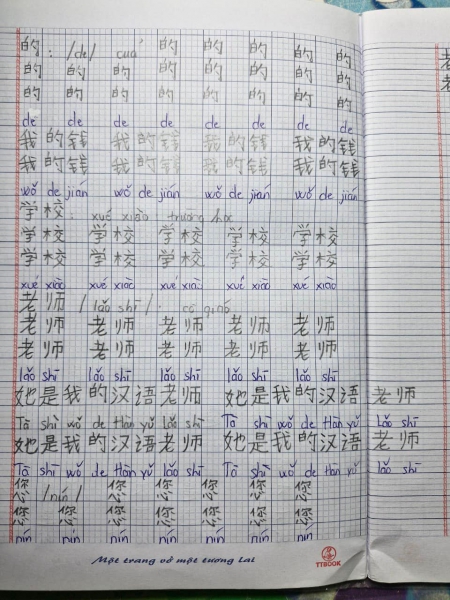 的: /de/ của 的 的 的 的
的 的 的 的 的 的 的 的
的 的 的 的 的 的 的 的
de de de de de de de de
我的钱 我的钱 我的钱 我的钱
我的钱 我的钱 我的钱 我的钱
wǒ de jián wǒ de jián wǒ de jián wǒ de jián
学校: xué xiào trường học
学校 学校 学校 学校 学校
学校 学校 学校 学校 学校
xué xiào xué xiào xué xiào xué xiào xué xiào
老师 / lǎo shī /: cô giáo
老师 老师 老师 老师 老师
老师 老师 老师 老师 老师
lǎo shī lǎo shī lǎo shī lǎo shī lǎo shī
她是我的汉语老师 她是我的汉语 老师
Tā shì wǒ de Hàn yǔ lǎo shī Tā shì wǒ de Hàn yǔ lǎo shī
她是我的汉语老师 她是我的汉语 老师
Tā shì wǒ de Hàn yǔ lǎo shī Tā shì wǒ de Hàn yǔ lǎo shī
您 /nín/ 您 您 您 您 您
您 您 您 您 您 您 您
nín nín nín nín nín nín nín
Một trang vở một tương lai
TTBOOK
老
老